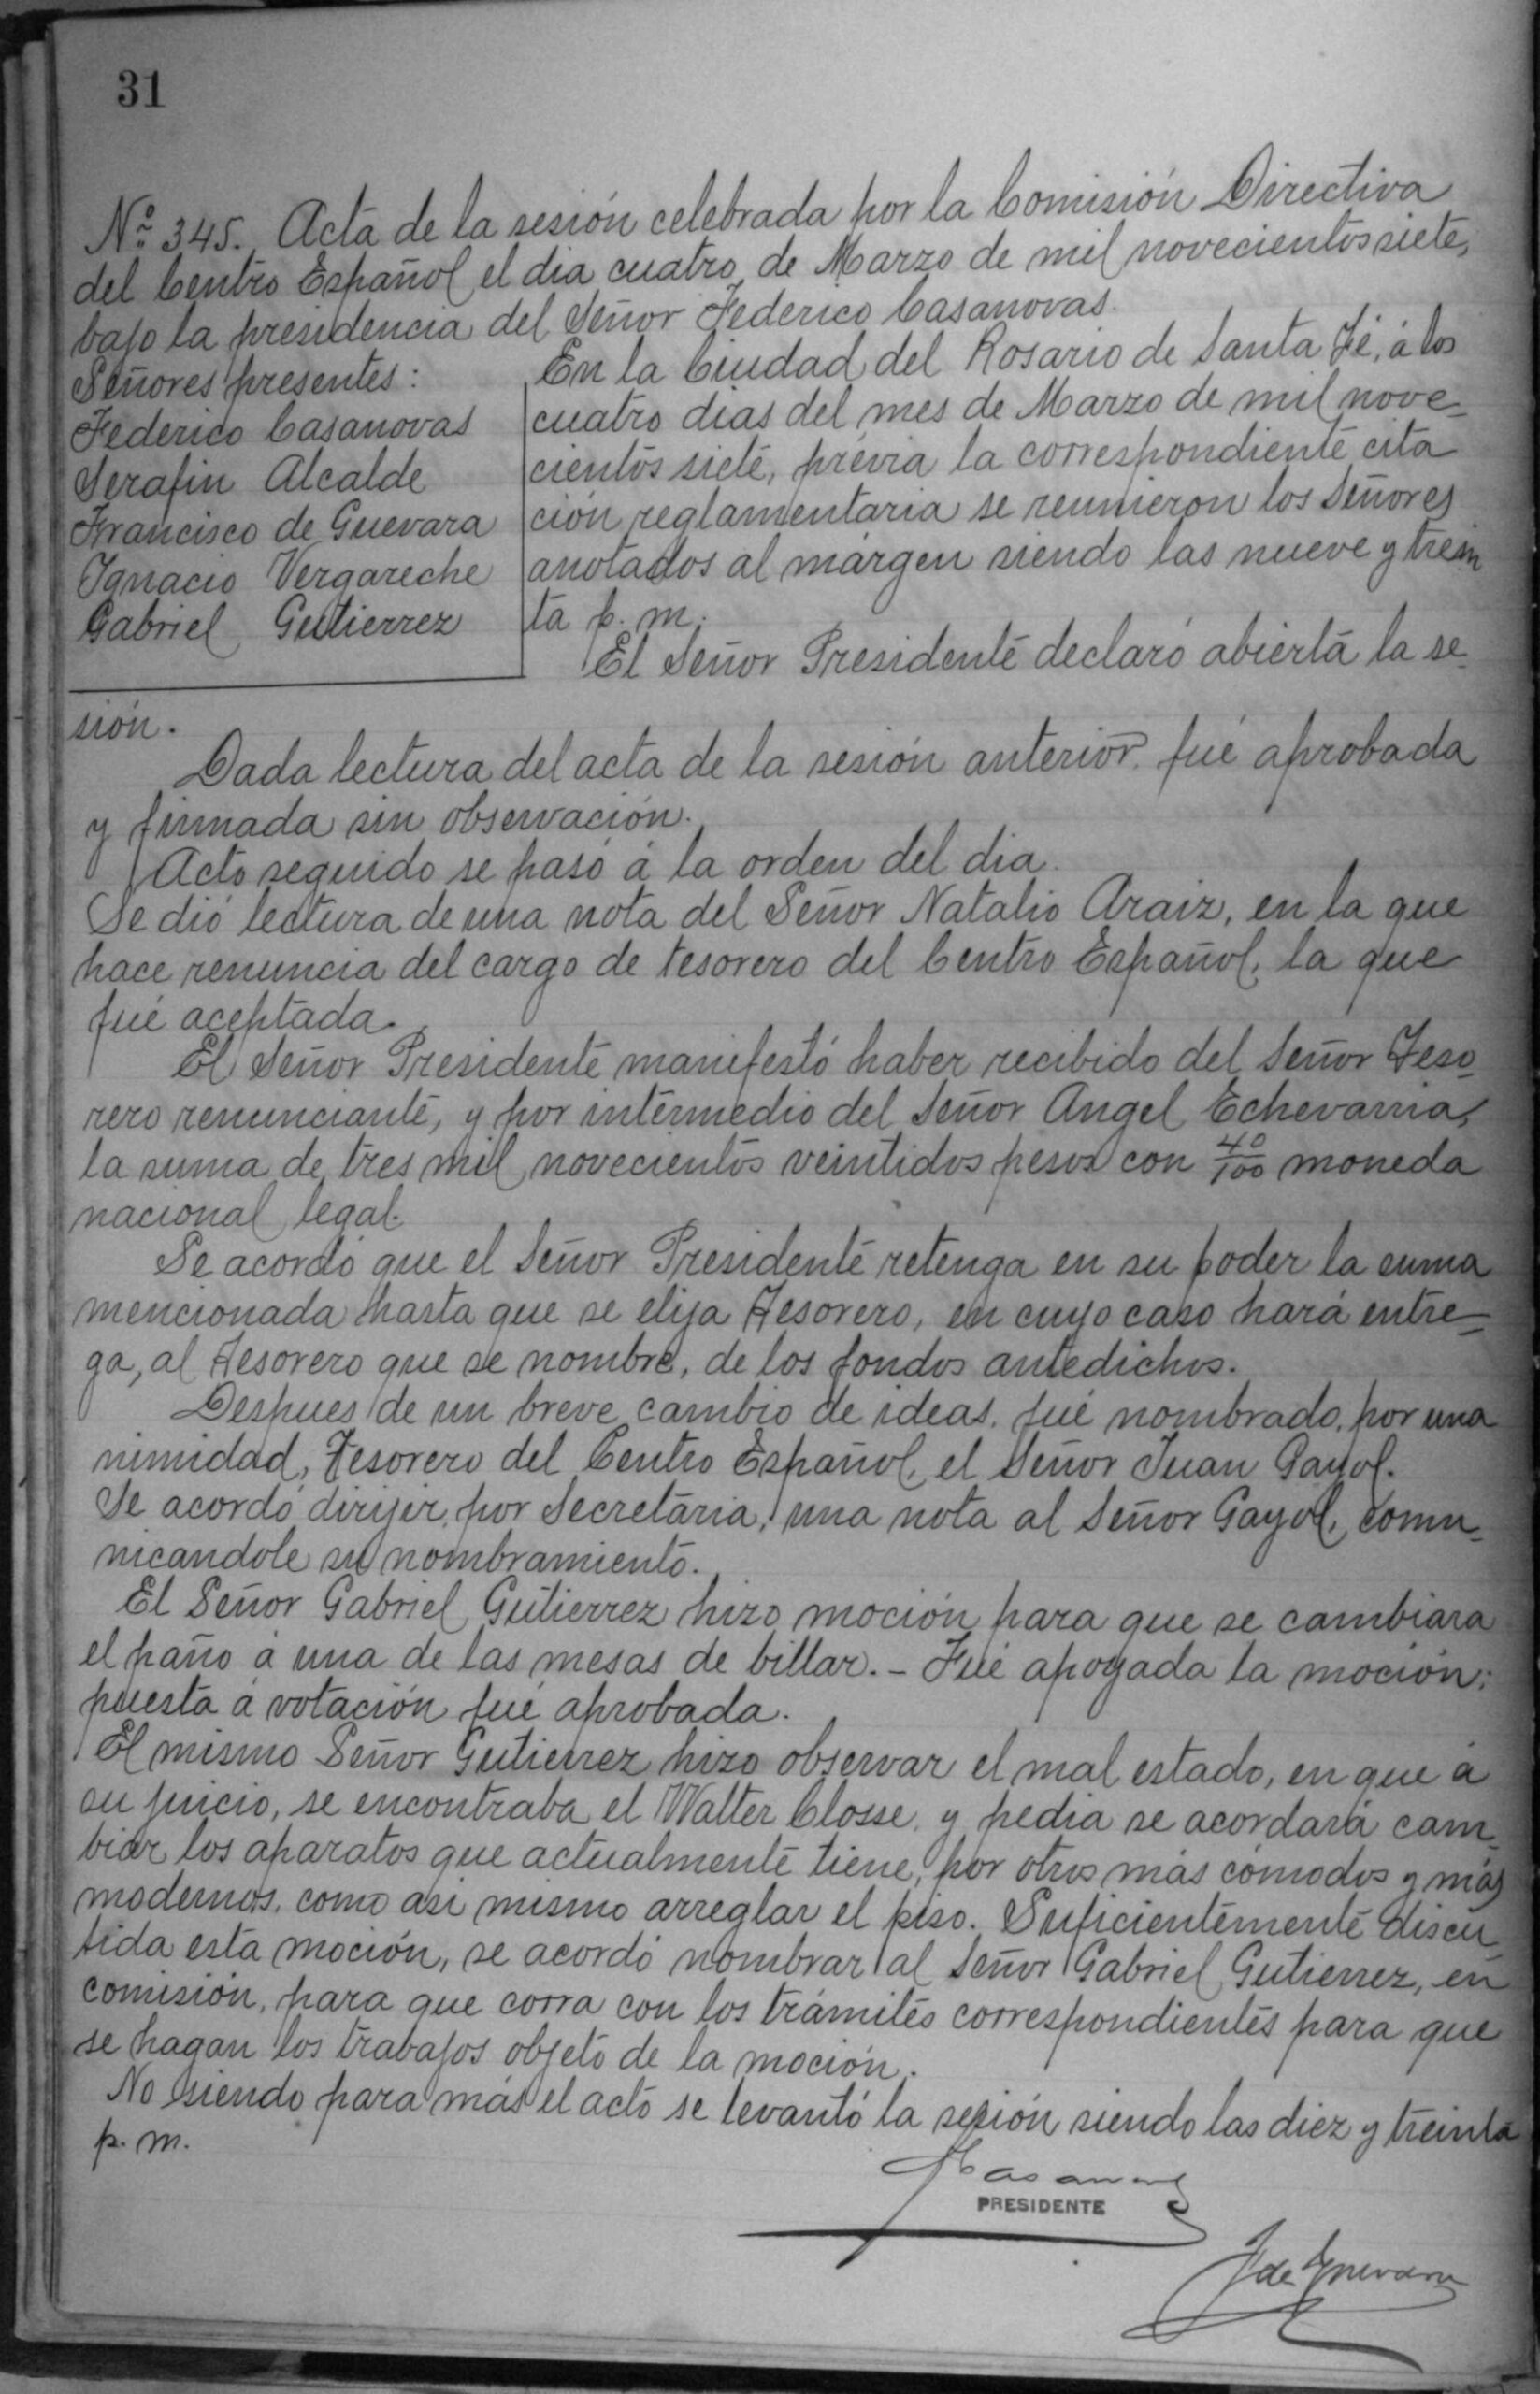 31
Nº 345. Acta de la sesión celebrada por la Comisión Directiva
del Centro Español el dia cuatro de Marzo de mil novecientos siete,
bajo la presidencia del Señor Federico Casanovas.
Señores presentes:
Federico Casanovas
Serafin Alcalde
Francisco de Guevara
Ignacio Vergareche
Gabriel Gutierrez
En la Ciudad del Rosario de Santa Fé, á los
cuatro dias del mes de Marzo de mil nove-
cientos siete, prévia la correspondiente cita
ción reglamentaria se reunieron los Señores
anotados al márgen siendo las nueve y trein
ta p. m.
El Señor Presidente declaró abierta la se-
sión.
Dada lectura del acta de la sesión anterior fué aprobada
y firmada sin observación.
Acto seguido se pasó á la orden del dia.
Se dió lectura de una nota del Señor Natalio Araiz, en la que
hace renuncia del cargo de tesorero del Centro Español, la que
fué aceptada.
El Señor Presidente manifestó haber recibido del Señor Teso-
rero renunciante, y por intermedio del Señor Angel Echevarria,
la suma de tres mil novecientos veintidos pesos con 40/100 moneda
nacional legal.
Se acordó que el Señor Presidente retenga en su poder la suma
mencionada hasta que se elija Tesorero, en cuyo caso hará entre-
ga, al Tesorero que se nombre, de los fondos antedichos.
Despues de un breve cambio de ideas, fué nombrado, por una
nimidad, Tesorero del Centro Español, el Señor Juan Gayol.
Se acordó dirijir, por Secretaria, una nota al Señor Gayol, comu-
nicandole su nombramiento.
El Señor Gabriel Gutierrez hizo moción para que se cambiara
el paño á una de las mesas de billar. - Fué apoyada la moción;
puesta á votación fué aprobada.
El mismo Señor Gutierrez hizo observar el mal estado, en que á
su juicio, se encontraba el Walter Closse, y pedia se acordara cam-
biar los aparatos que actualmente tiene, por otros más cómodos y más
modernos, como asi mismo arreglar el piso. Suficientemente discu-
tida esta moción, se acordó nombrar al Señor Gabriel Gutierrez, en
comisión, para que corra con los trámites correspondientes para que
se hagan los trabajos objeto de la moción.
No siendo para más el acto se levantó la sesión siendo las diez y treinta
p. m.
F Casanovas
PRESIDENTE
F de Guevara